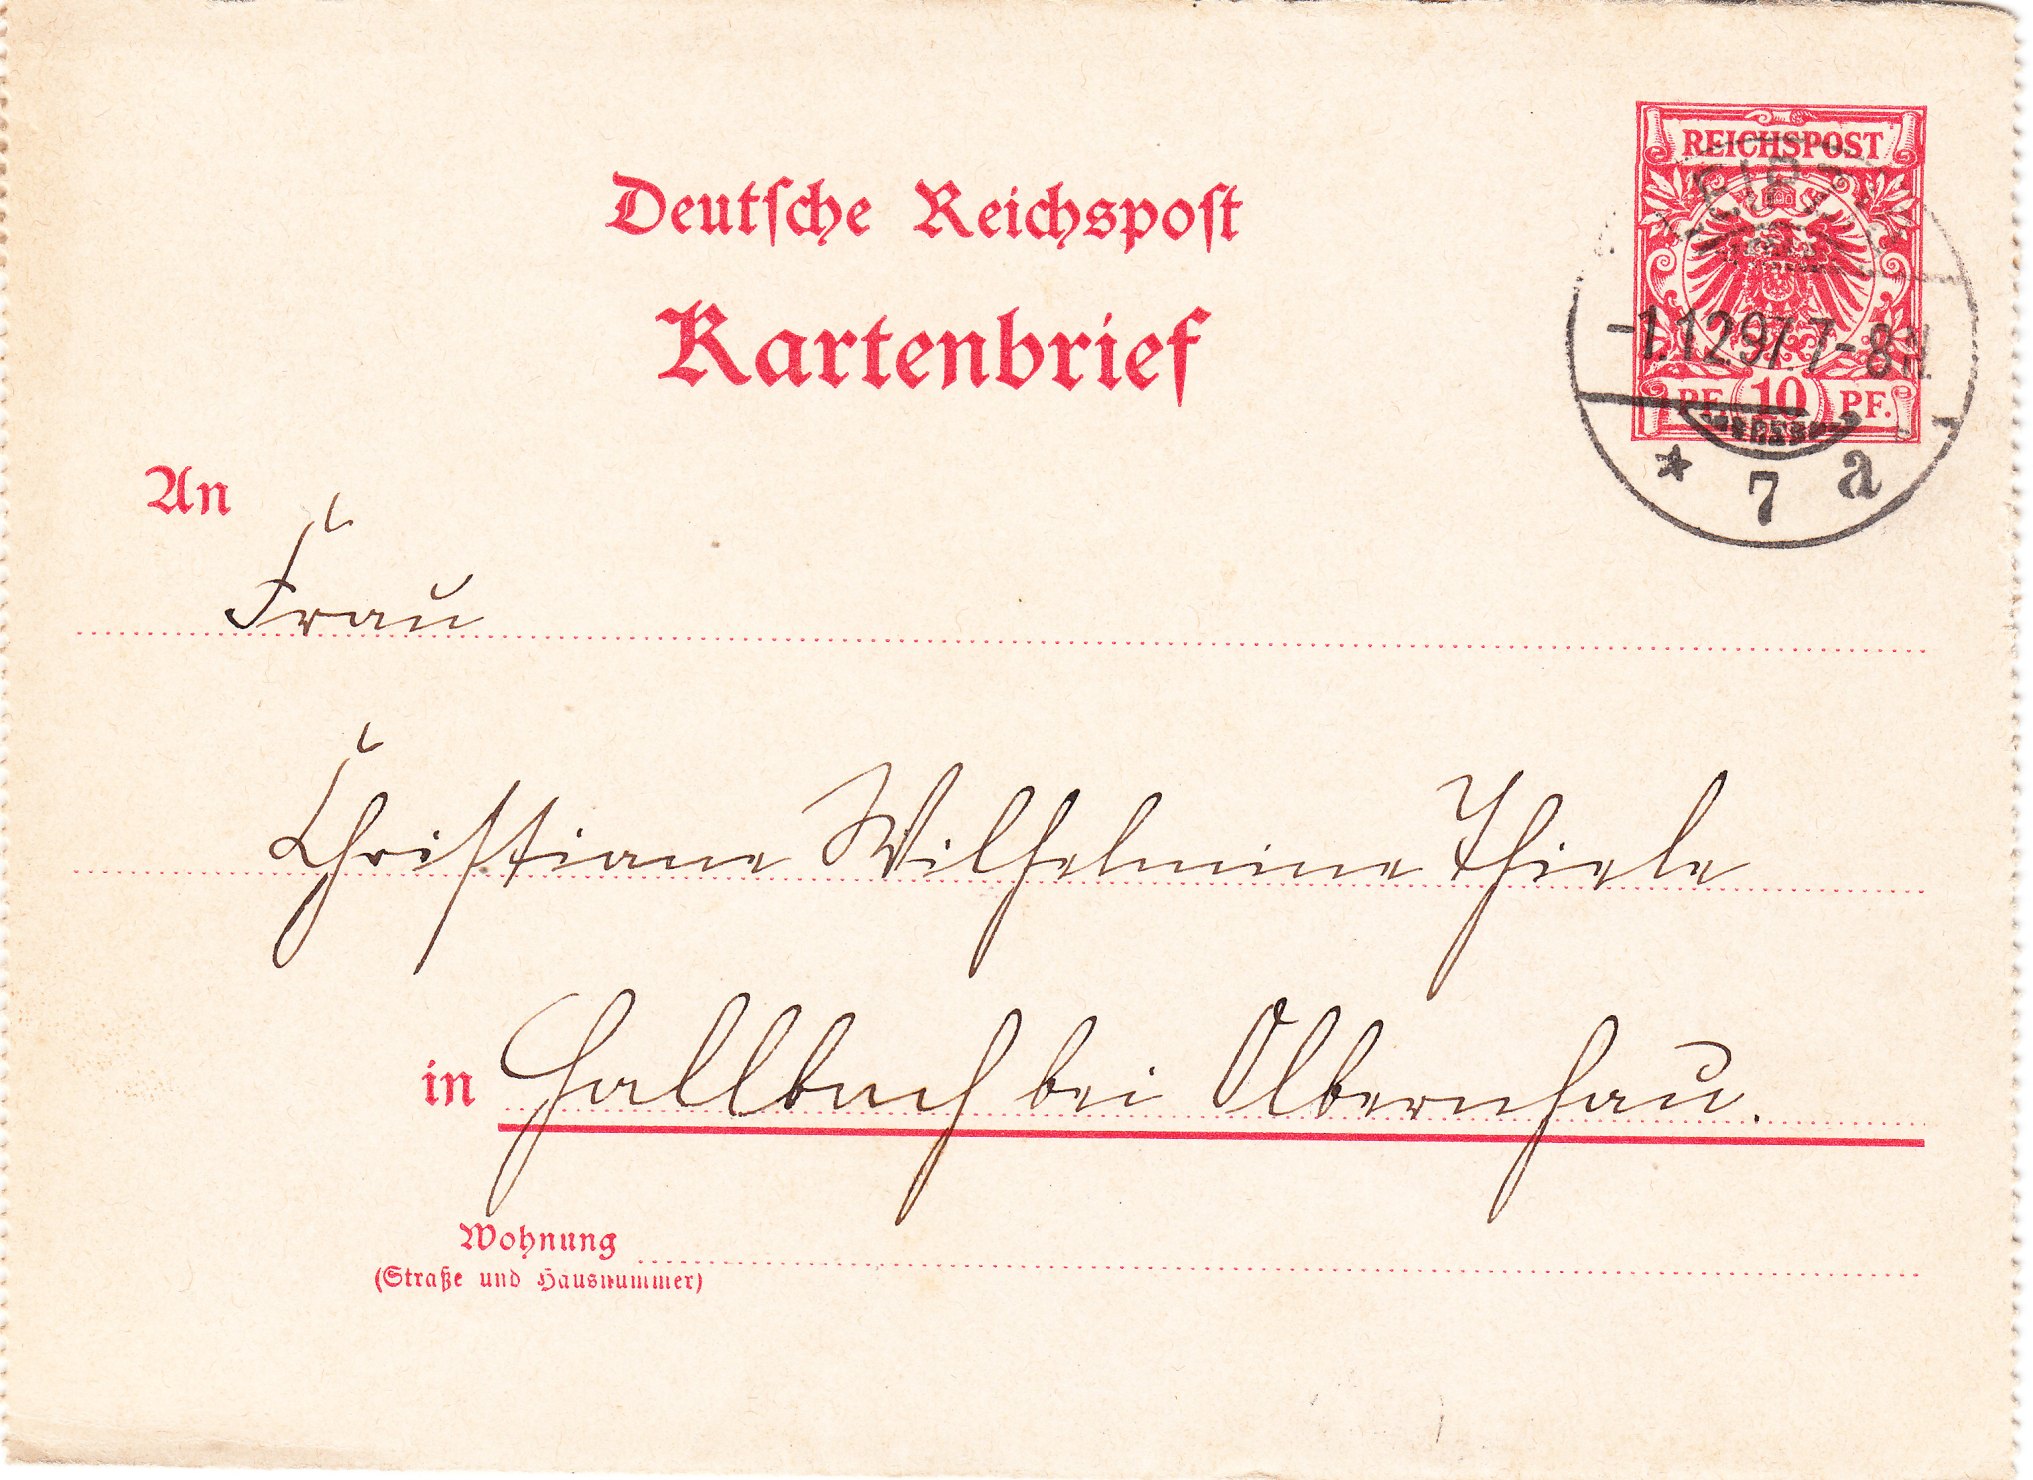 REICHSPOST
Deutſche Reichspoſt
Kartenbrief
-1.12.97.7-8N.
PF. 10 PF.
* 7 a
An
Frau
Christiane Wilhelmine Thiele
in Hallbach bei Olbernhau.
Wohnung
(Straße und Hausnummer)